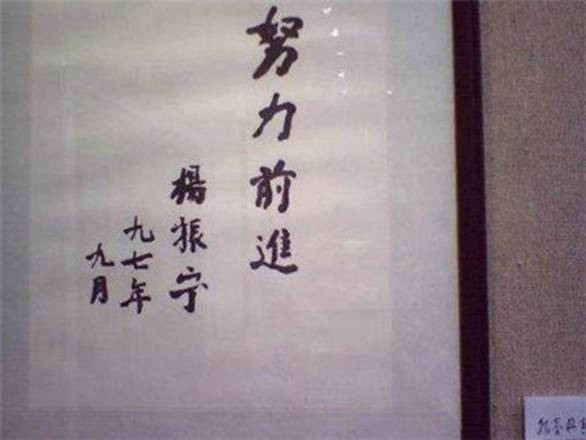 努力前進
楊振宁
九七年
九月